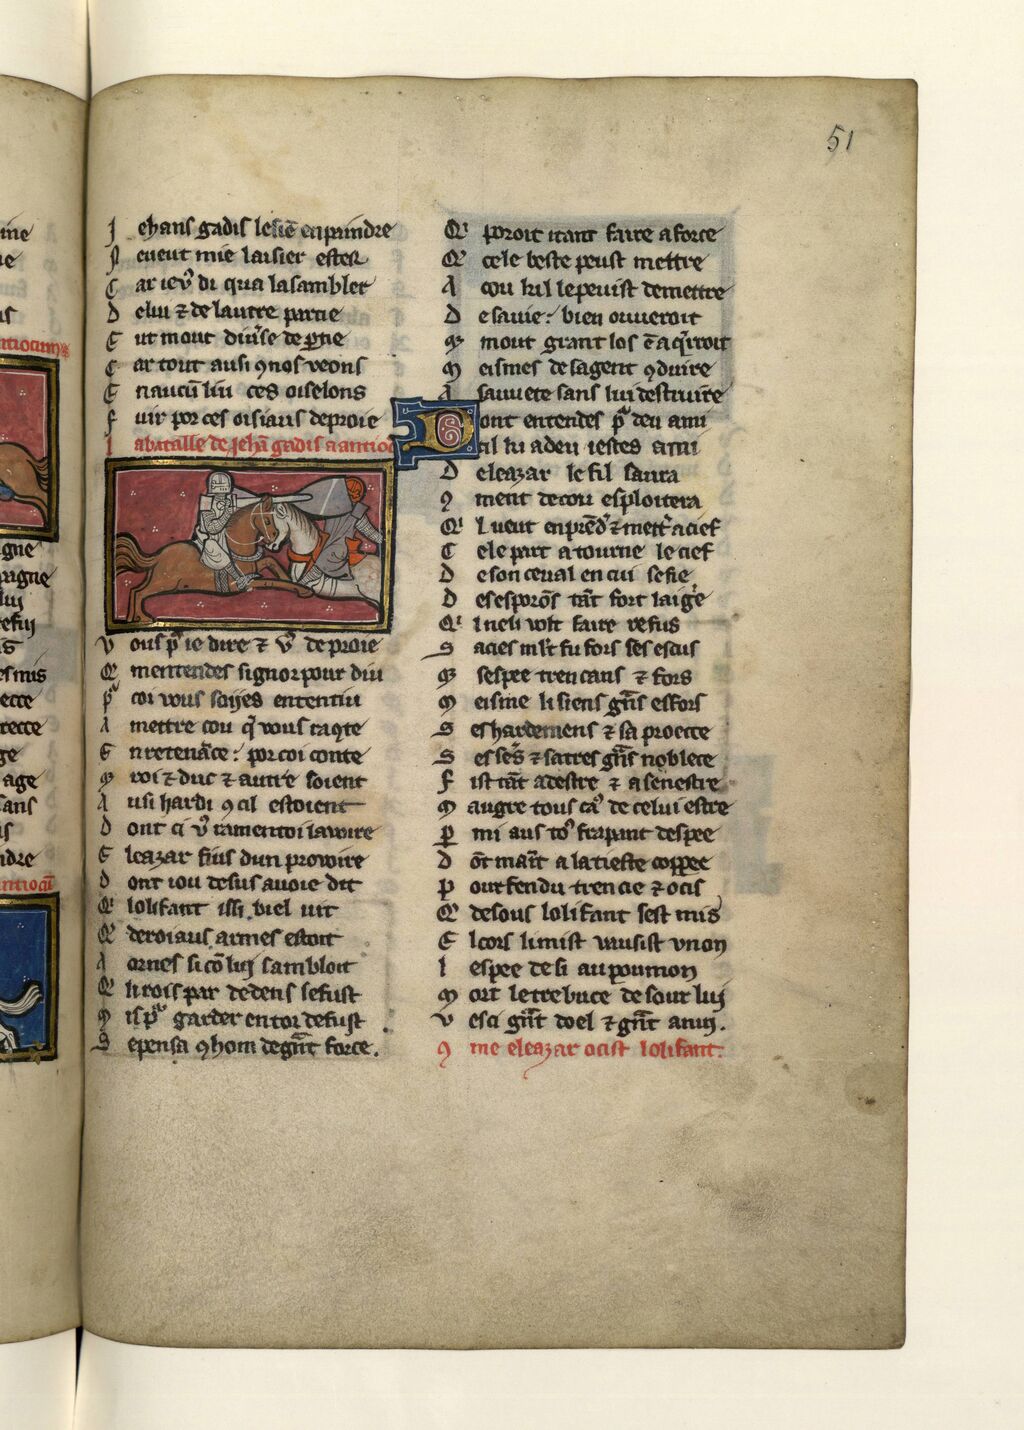 51
J ehans gadis lesiē enpaindre
N eueut mie laisier ester
C ar ieꝰ di qua lasambler
D elui ⁊ de lautre partie
E ut mout diu'se de ꝑtie
C ar tout ausi ꝯnos veons
E naucū liu ces oiselons
F uir por ces oisiaus deproie
l abataille de Jehā gadis a antioc
V ous pͥ ie dire ⁊ vͬ de proie
Q mentendes signor pour diu
pͬ coi vous soijes ententiu
A mettre cou qͥ vous raqte
E n retenāce: por coi conte
Q roi ⁊ duc ⁊ autre soient
A usi hardi ꝯ cil estoient
D ont ci vͬ ramentoi lawire
E leazar fius dun prowire
D ont iou desus auoie dit
Qͥ lolifant issi biel vit
Q deroiaus armes estoit
A ornes si cō lui sambloit
Qͥ li rois par dedens sefust
M is pͬ garder en tor defust
S epensa ꝯ hom de gͣnt force.
Qͥ poroit itant faire a force
Qͥ cele beste peust mettre
A cou kil lepeuist demettre
D e sa uie: bien ouueroit
Q mout grant los ē aqͥrroit
M eismes de sa gent ꝯduire
A sauuete sans lui destruire
D ont entendes pͬ deu ami
cil ki a deu iestes ami
D eleazar le fil saura
ꝯ ment de cou esploitera
Qͥl ueut enprēdͬ ⁊ mettͬ a cief
C ele part a tourne le cief
D e son ceual en cui se fie
D es esporōs tāt fort laigͥe
Qͥl neli volt faire refus
S acies ml't fu fors ses escus
Q sespee trencans ⁊ fors
M eisme li siens gͣns esfors
S es hardemens ⁊ sa proecce
S es sēs ⁊ satres gͣns noblece
F ist tāt a destre ⁊ a senestre
M augre tous caͬ de celui estre
P ar mi aus toꝰ frapant despee
D ōt maīt a la tieste copee
P ourfendu trencie ⁊ ocis
Qͥ desous lolifant sest mis
E l cors li mist vausist v non
l espee de si au poumon
M ort le trebuce de sour lui
V esci gͣnt doel ⁊ gͣnt anui.
ꝯ me eleazar ocist lolifant.